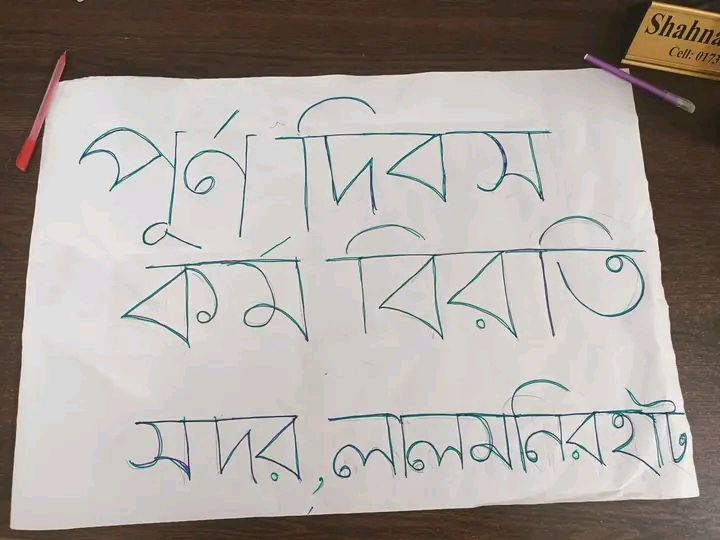 Shahna
Cell: 0173
পূর্ণ দিবস
কর্ম বিরতি
সদর, লালমনিরহাট